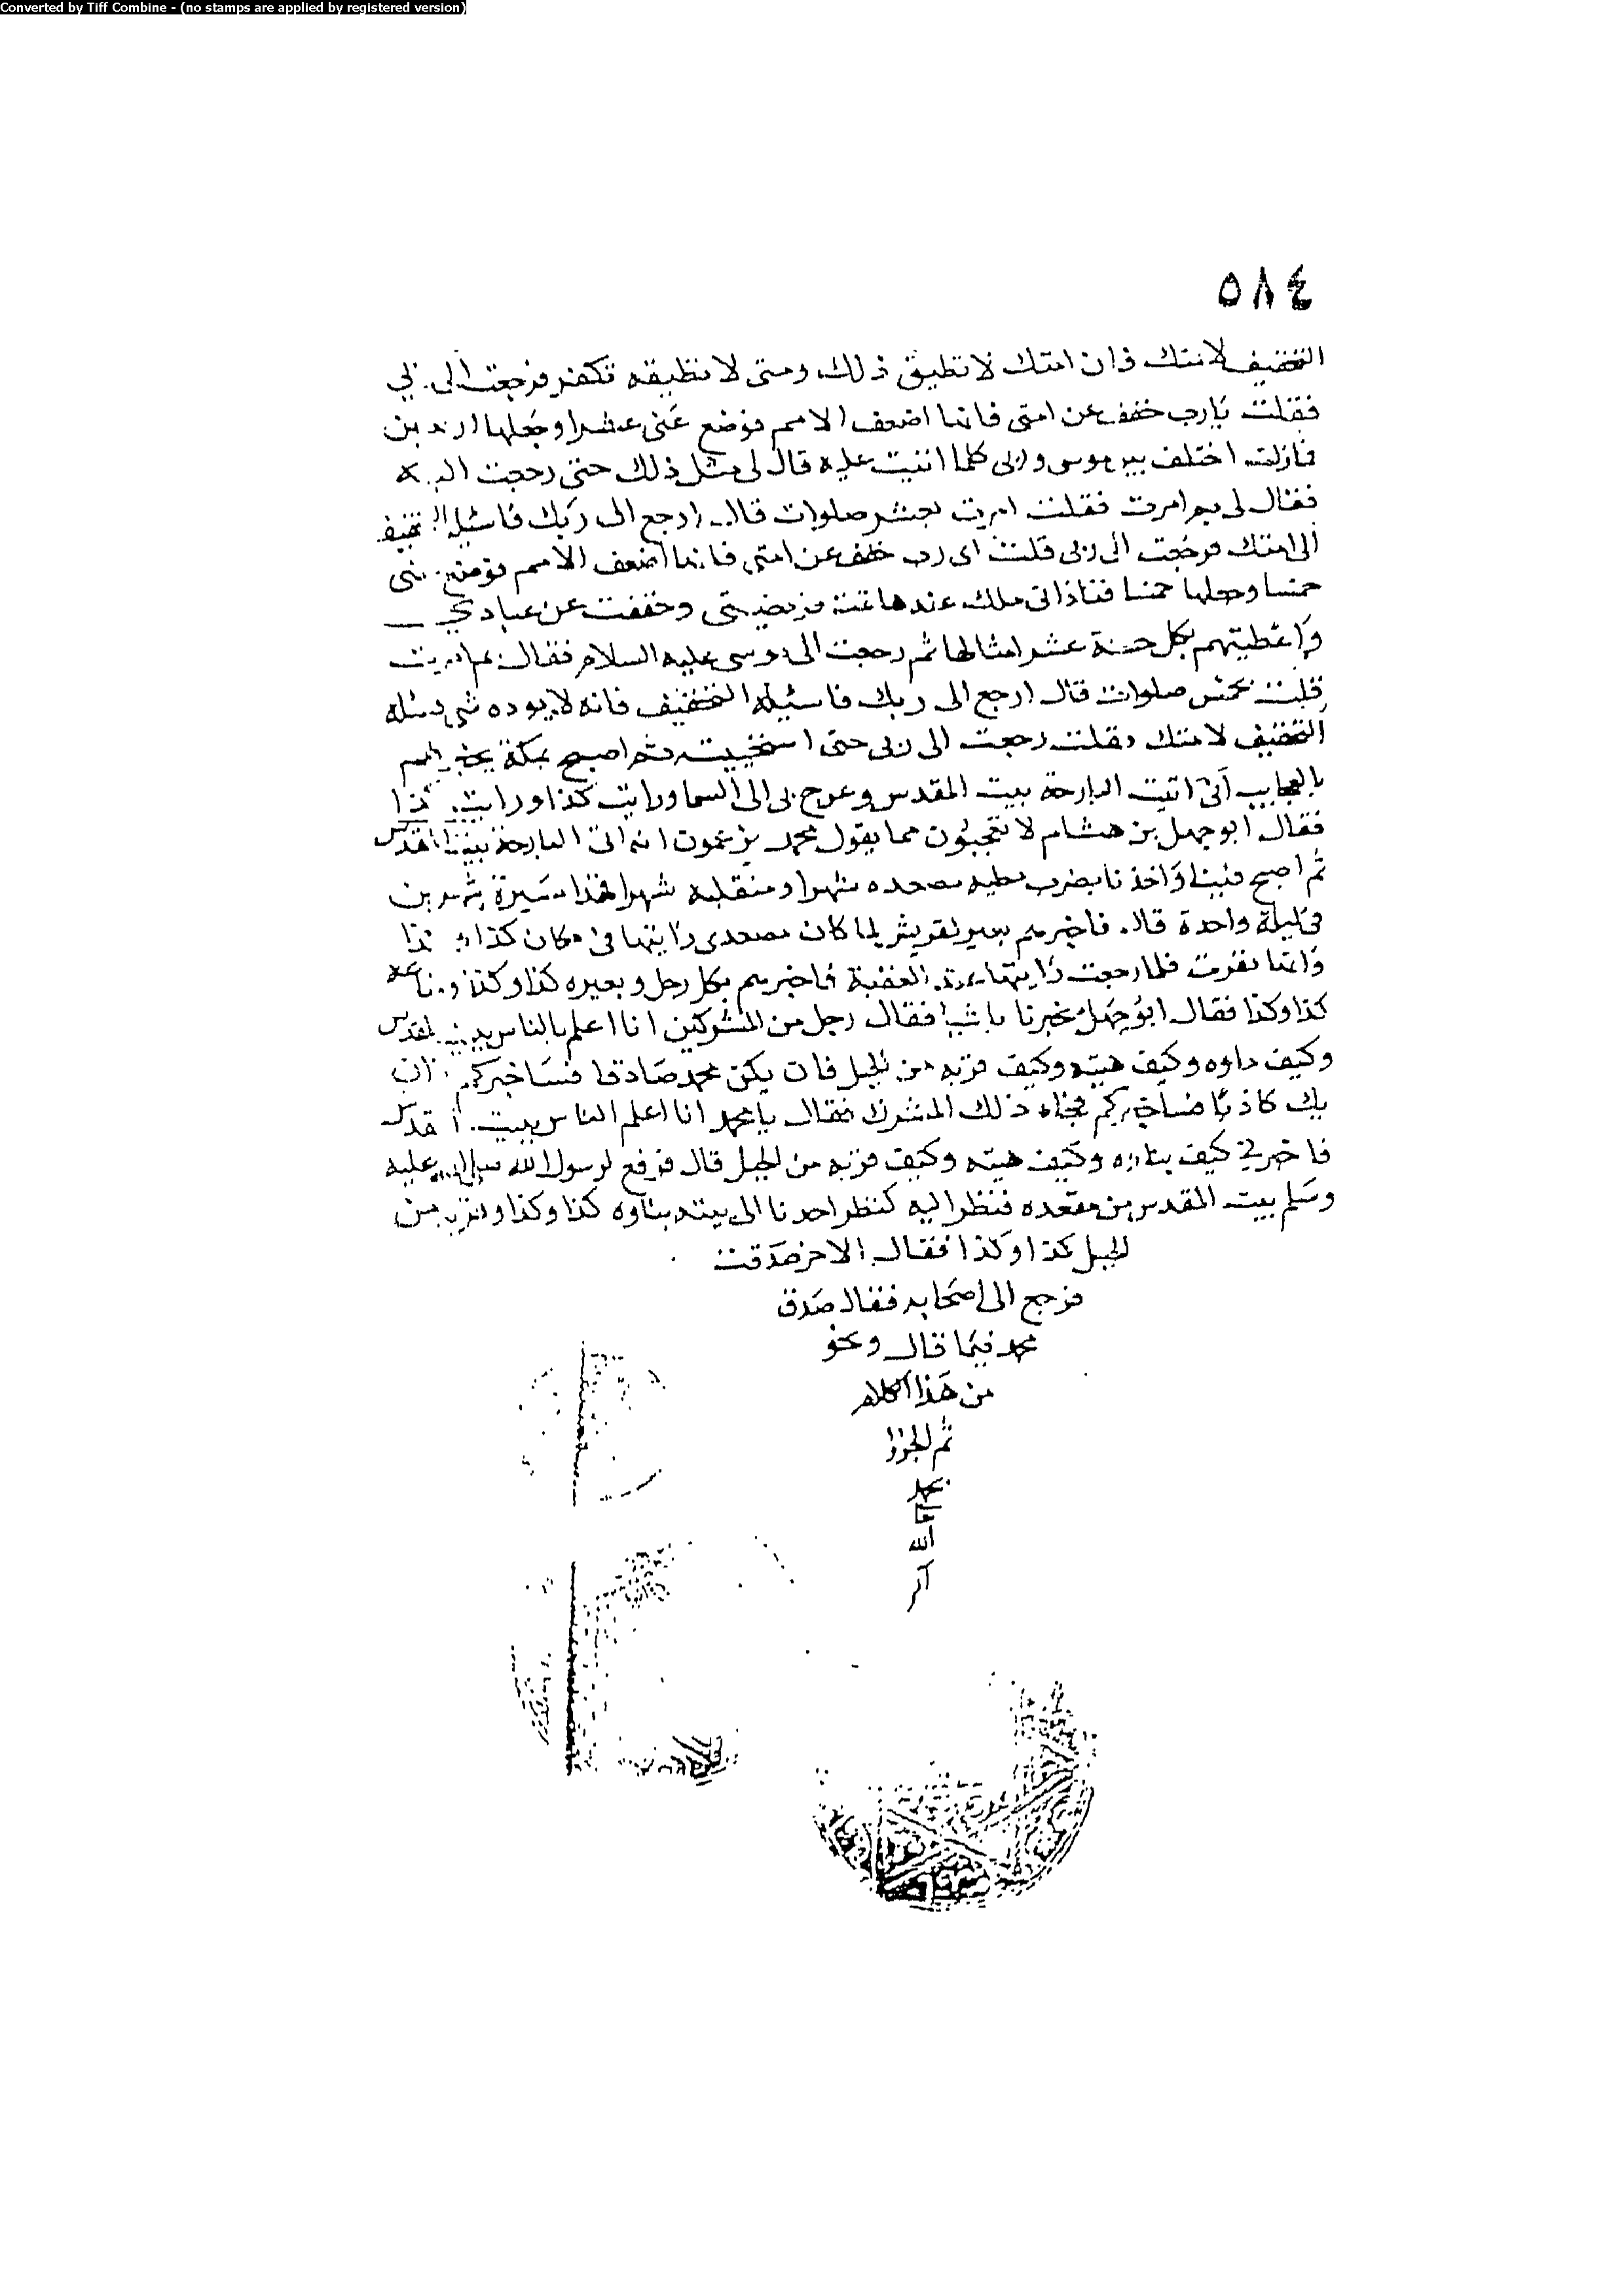 Converted by Tiff Combine - (no stamps are applied by registered version)
٥٨٤
التخفيف لامتك فان امتك لا تطيق ذلك ومتى لا تطيقه تكفر فرجعت الى ربي
فقلت يارب خفف عن امتى فانها اضعف الامم فوضع عنى عشرا وجعلها اربعين
فمازلت اختلف بين موسى وربى كلما اتيت عليه قال لى مثل ذلك حتى رجعت اليه
فقال لى بم امرت فقلت امرت بعشر صلوات قال ارجع الى ربك فاسئله التخفيف
الى امتك فرجعت الى ربى قلت اى رب خفف عن امتى فانها اضعف الامم فوضع عنى
خمسا وجعلها خمسا فنادانى ملك عندها تمت فريضتى وخففت عن عبادي
واعطيتهم بكل حسنة عشر امثالها ثم رجعت الى موسى عليه السلام فقال بم امرت
قلت بخمس صلوات قال ارجع الى ربك فاسئله التخفيف فانه لا يوده شى فسله
التخفيف لامتك فقلت رجعت الى ربى حتى استحييت ثم اصبح بمكة يخبرهم
بالعجايب انى اتيت البارحة بيت المقدس وعرج بى الى السما ورايت كذا ورايت كذا
فقال ابو جهل بن هشام لا تعجبون مما يقول محمد يزعمون انه اتى البارحة بيت المقدس
ثم اصبح فينا واخذنا يضرب مطيه مصعده شهرا ومنقلبه شهرا فهذا مسيرة شهرين
فى ليلة واحدة قال فاخبرهم بعير لقريش لما كان مصعدى رايتها فى مكان كذا وكذا
وانها نفرت فلما رجعت رايتها عند العقبة فاخبرهم بكل رجل وبعيره كذا وكذا ومتاعه
كذا وكذا فقال ابو جهل يخبرنا باشيا فقال رجل من المشركين انا اعلم بالناس ببيت المقدس
وكيف بناوه وكيف هيئته وكيف قربه من الجبل فان يكن محمد صادقا فساخبركم وان
يك كاذبا فساخبركم فجاه ذلك المشرك فقال يا محمد انا اعلم الناس ببيت المقدس
فاخبرنى كيف بناوه وكيف هيئته وكيف قربه من الجبل قال فرفع لرسول الله صلى الله عليه
وسلم بيت المقدس من مقعده فنظر اليه كنظر احدنا الى بيته بناوه كذا وكذا وقربه من
الجبل كذا وكذا فقال الاخر صدقت
فرجع الى اصحابه فقال صدق
محمد فيما قال ونحو
من هذا الكلام
ثم الجزو
بحمد
الله